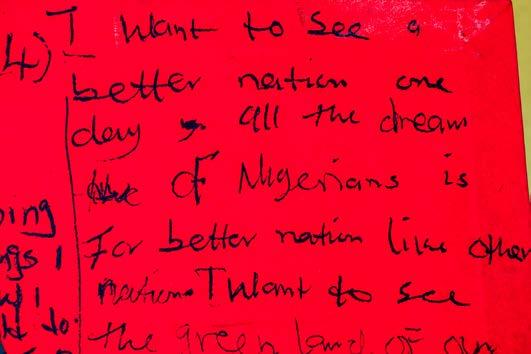 4) I want to see a
better nation one
day, all the dream
of Nigerians is
For better nation like other
nation I want to see
the green land of our
ping
ngs I